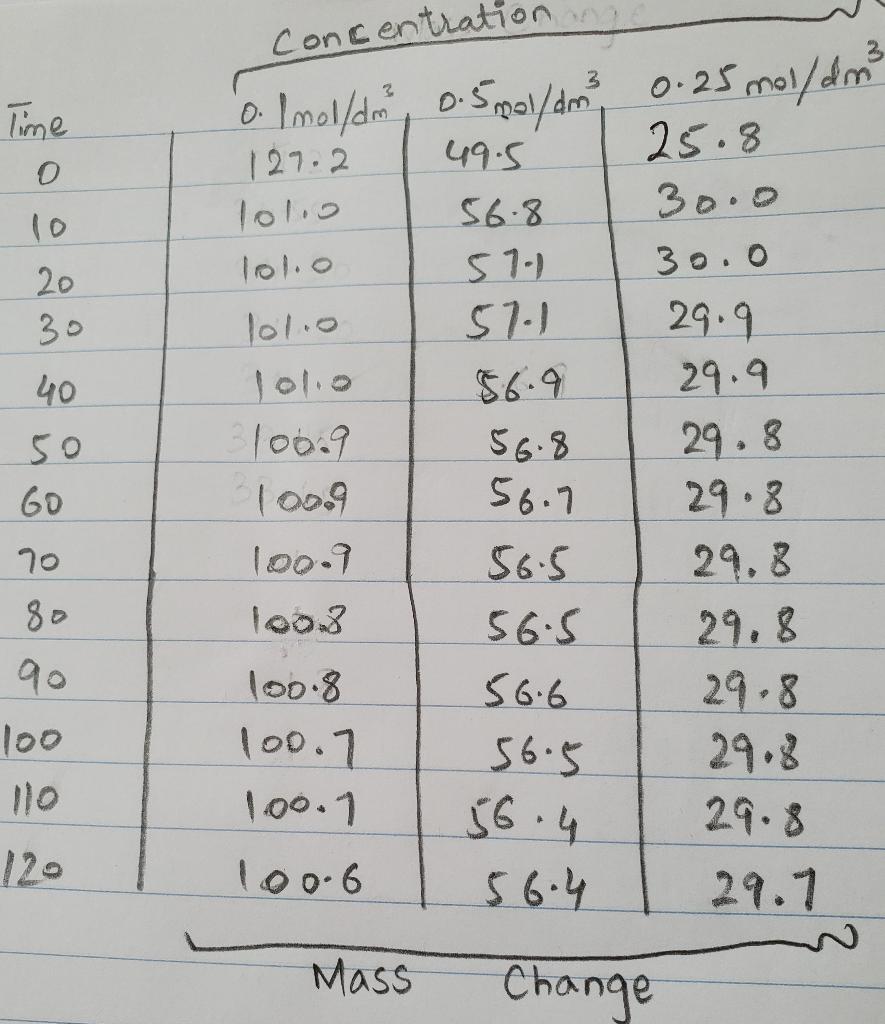 Concentration
Time 0.1mol/dm³ 0.5mol/dm³ 0.25 mol/dm³
0 127.2 49.5 25.8
10 101.0 56.8 30.0
20 101.0 57.1 30.0
30 101.0 57.1 29.9
40 101.0 56.9 29.9
50 100.9 56.8 29.8
60 100.9 56.7 29.8
70 100.9 56.5 29.8
80 100.8 56.5 29.8
90 100.8 56.6 29.8
100 100.7 56.5 29.8
110 100.7 56.4 29.8
120 100.6 56.4 29.7
Mass Change